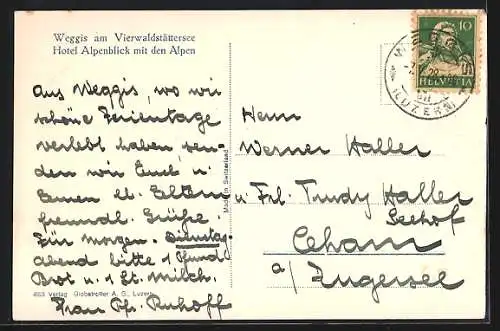 Weggis am Vierwaldstättersee
Hotel Alpenblick mit den Alpen
Aus Weggis, wo wir
schöne Ferientage
verlebt haben, sen-
den wir Euch u.
Euren lb. Eltern
freundl. Grüße.
Für morgen Dienstag-
abend bitte 1 Pfund
Brot u. 1 St. Milch.
Frau Pfr. Ruhoff
463 Verlag Globetrotter A. G., Luzern
Made in Switzerland
10
HELVETIA
WEGGIS
(LUZERN)
Herrn
Werner Haller
u Frl. Trudy Haller
Seehof
Cham
a/ Zugersee